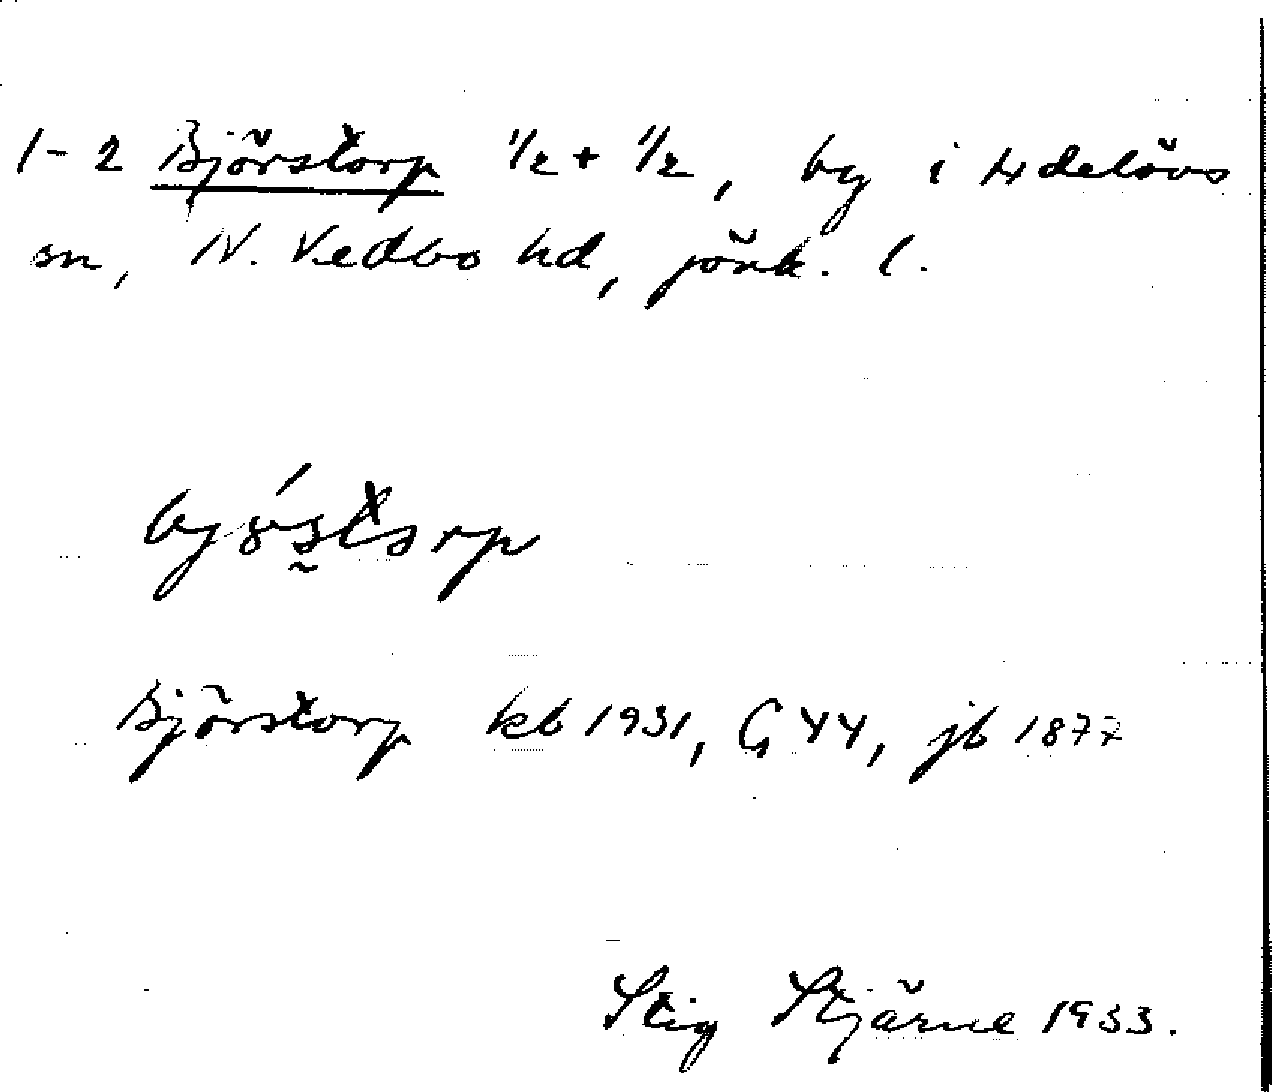 1-2 Björstorp 1/2 + 1/2, by i Hdelövs
sn, N. Vedbo hd, jönk. l.
Björstorp kb 1931, G 44, jb 1877
Stig Stjärne 1933.